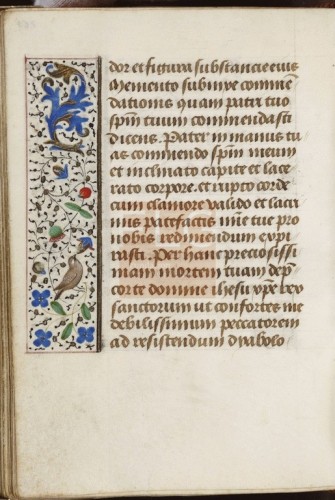 dor et figura substancie eius
Memento submire comméñ
dationis quam patri tuo
spm̄ tuum commendasti
dicens. Pater in manus tu
as commendo spm̄ meum
et inclinato capite et lace
rato corpore. et irupto corde
cum clamore valido et lacri
mis patefactis pro
nobis redimendum expi
rasti. Per hanc preciosissi
mam mortem tuam dep̄
cor te domine ihesu xp̄e rex
sanctorum ut confortes me
debilissimum peccatorem
ad resistendum dyabolo